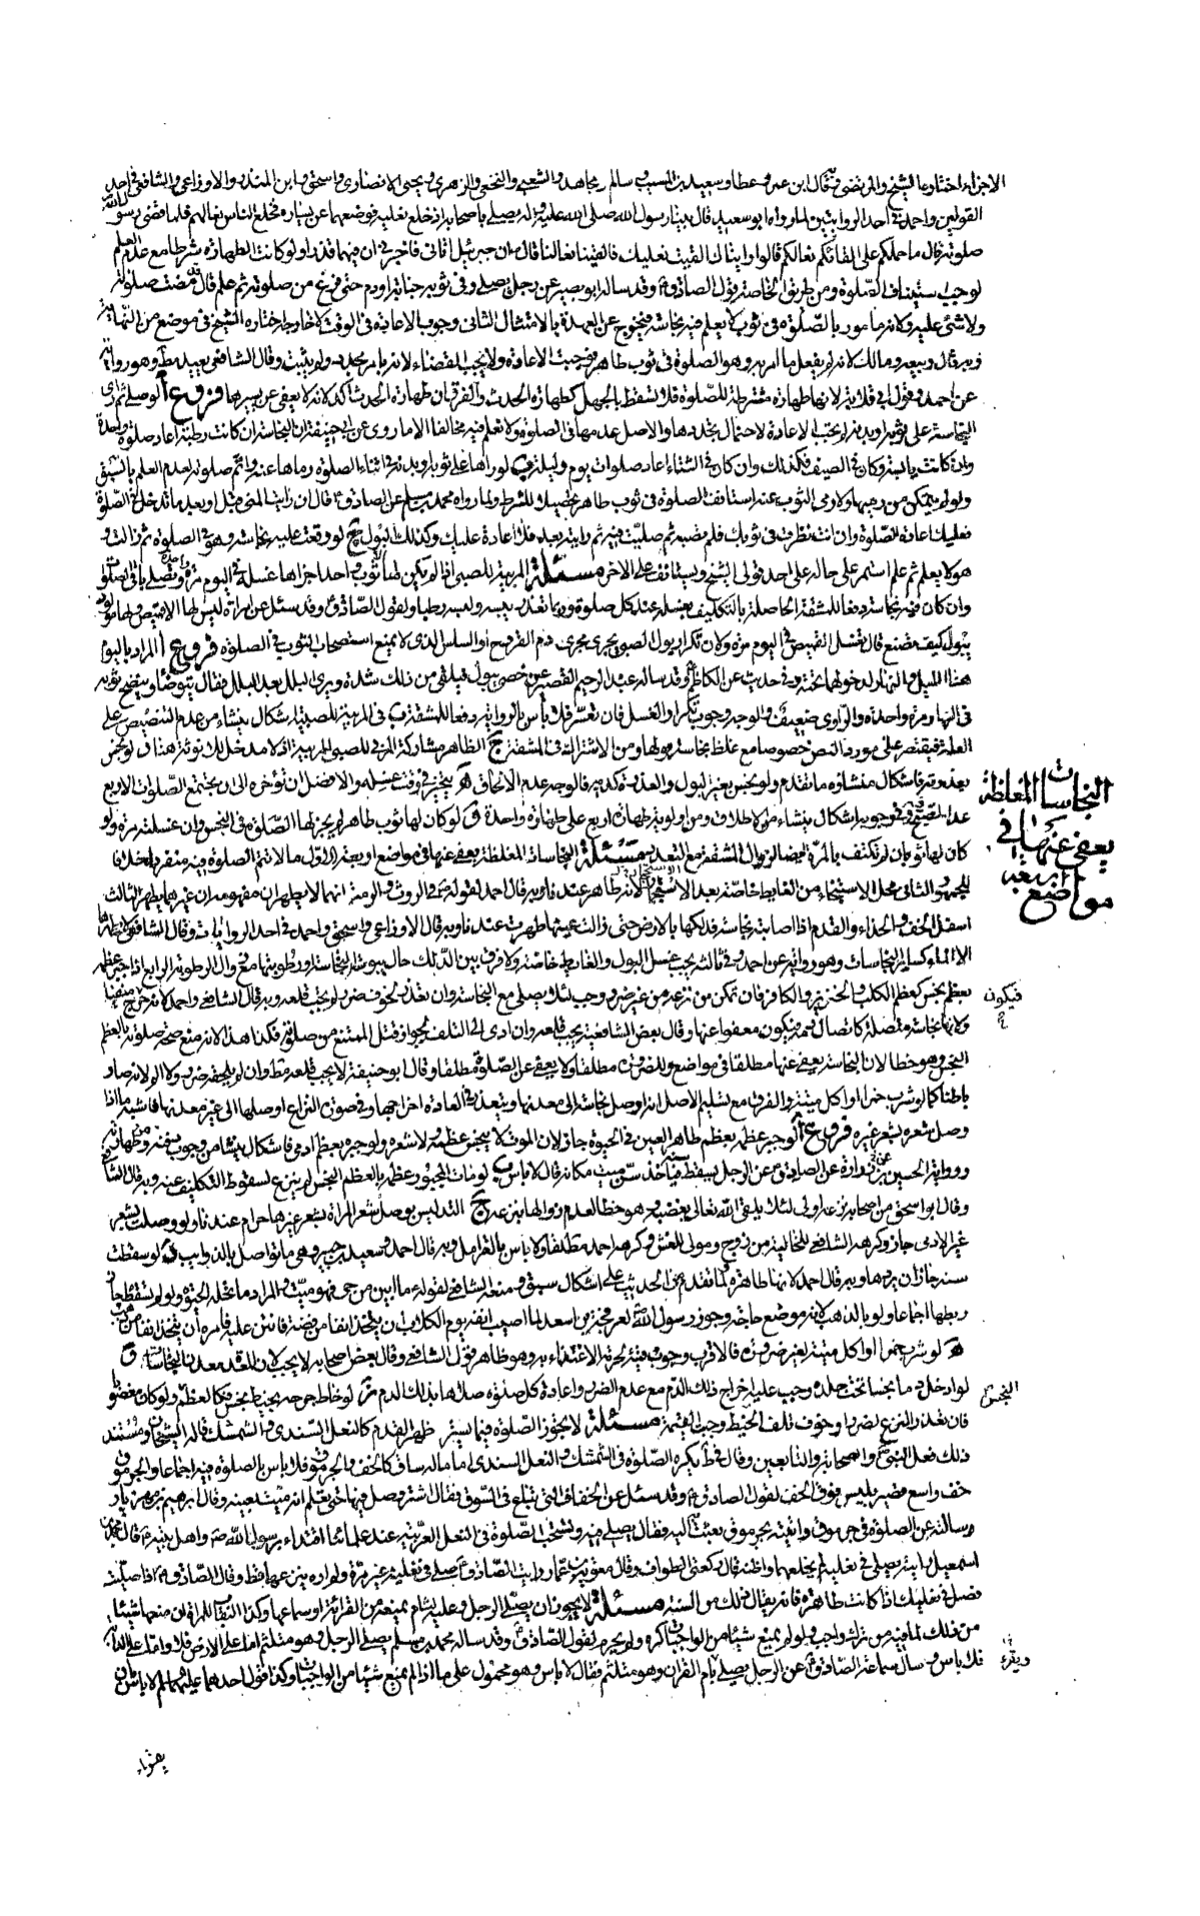 الاجزاء اختاره الشيخ والمرتضى وبه قال ابن عمر وعطا وسعيد بن المسيب وسالم ومجاهد والشعبي والنخعي والزهري ويحيى الانصاري واسحق وابن المنذر والاوزاعي والشافعي في احد
القولين واحمد في احد الروايتين لما رواه ابو سعيد قال بينا رسول الله صلى الله عليه واله يصلي باصحابه اذ خلع نعليه فوضعهما عن يساره فخلع الناس نعالهم فلما قضى رسول الله
صلوته قال ما حملكم على القائكم نعالكم قالوا رايناك القيت نعليك فالقينا نعالنا قال ان جبرئيل اتاني فاخبرني ان فيهما قذرا ولو كانت الطهارة شرطا مع عدم العلم
لوجب استيناف الصلوة ومن طريق الخاصة قول الصادق ع وقد ساله ابو بصير عن رجل صلى وفي ثوبه جنابة او دم حتى فرغ من صلوته ثم علم قال قد مضت صلوته
ولا شئ عليه ولانه مامور بالصلوة في ثوب لا يعلم فيه نجاسة فيخرج عن العهدة بالامتثال الثاني وجوب الاعادة في الوقت لا خارجه اختاره الشيخ في موضع من النهاية
وبه قال ربيعة ومالك لانه لم يفعل ما امر به وهو الصلوة في ثوب طاهر فوجبت الاعادة ولا يجب القضاء لانه بامر مجدد ولم يثبت وقال الشافعي يعيد مط وهو رواية
عن احمد وقول ابي قلابة لانها طهارة مشترطة للصلوة فلا تسقط بالجهل كطهارة الحدث والفرق ان طهارة الحدث آكد لانه لا يعفى عن يسيرها فروع أ لو صلى ثم راى
النجاسة على ثوبه او بدنه لم يجب الاعادة لاحتمال تجددها والاصل عدمها في الصلوة ولا نعلم فيه مخالفا الا ما روي عن ابي حنيفة ان النجاسة ان كانت رطبة اعاد صلوة واحدة
وان كانت يابسة وكان في الصيف فكذلك وان كان في الشتاء اعاد صلوات يوم وليلة ب لو راها على ثوبه او بدنه في اثناء الصلوة رماها عنه واتم صلوته لعدم العلم بالسبق
ولو لم يتمكن من رميها ولا رمى الثوب عنه استانف الصلوة في ثوب طاهر تحصيلا للشرط ولما رواه محمد بن مسلم عن الصادق ع قال ان رايت المني قبل او بعد ما تدخل في الصلوة
فعليك اعادة الصلوة وان انت نظرت في ثوبك فلم تصبه ثم صليت فيه ثم رايته بعد فلا اعادة عليك وكذلك البول ج لو وقعت عليه نجاسة وهو في الصلوة ثم زالت و
هو لا يعلم ثم علم استمر على حاله على احد قولي الشيخ ويستانف على الاخر مسئلة المربية للصبي اذا لم يكن لها الا ثوب واحد اجزاها غسله في اليوم مرة واحدة وتصلي باقي الصلوات
وان كان فيه نجاسة دفعا للمشقة الحاصلة بالتكليف بغسله عند كل صلوة وربما تعذر يبسه ولبسه رطبا ولقول الصادق ع وقد سئل عن امراة ليس لها الا قميص ولها مولود
يبول كيف تصنع قال تغسل القميص في اليوم مرة ولان تكرار بول الصبي يجري مجرى دم القروح او السلس الذي لا يمنع استصحاب الثوب في الصلوة فروع أ المراد باليوم
هنا الليل والنهار لدخولها تحته وفي حديث عن الكاظم ع وقد ساله عبد الرحيم القصير عن خصي يبول فيلقى من ذلك شدة ويرى البلل بعد البلل فقال يتوضأ وينضح ثوبه
في النهار مرة واحدة والراوي ضعيف والوجه وجوب تكرار الغسل فان تعسر فلا بأس بالرواية دفعا للمشقة ب في المربية للصبية اشكال ينشاء من عدم التنصيص على
العلة فيقتصر على مورد النص خصوصا مع غلظ نجاسة بولها ومن الاشتراك في المشقة ج الظاهر مشاركة المربي للصبي المربية اذ لا مدخل للانوثة هنا د لو نجس
بعذرته فاشكال منشاؤه ما تقدم ولو نجس بغير البول والعذرة كدمه فالوجه عدم الالحاق ه يتخير في وقت غسله والافضل ان تؤخره الى ان يجتمع الصلوات الاربع
عدا الصبح وفي وجوبه اشكال ينشاء من الاطلاق ومن اولوية طهارة اربع على طهارة واحدة و لو كان لها ثوب طاهر لم يجز لها الصلوة في النجس وان غسلته مرة ولو
كان لها ثوبان لم تكتف بالمرة ايضا لزوال المشقة مع التعدد مسئلة النجاسات المغلظة يعفى عنها في مواضع اربعة الاول ما لا تتم الصلوة فيه منفردا خلافا
للجمهور الثاني محل الاستنجاء من الغايط خاصة بعد الاستجمار لانه طاهر عندنا وبه قال احمد لقوله ص في الروث والرمة انهما لا يطهران مفهومه ان غيرهما يطهر الثالث
اسفل الخف والحذاء والقدم اذا اصابته نجاسة فدلكها بالارض حتى زالت عينها طهرت عندنا وبه قال الاوزاعي واسحق واحمد في احد الروايات وقال الشافعي لا يطهرها
الا الماء كساير النجاسات وهو رواية عن احمد وفي ثالثة يجب غسل البول والغايط خاصة ولا فرق بين الدلك حال يبوسة النجاسة ورطوبتها مع زوال الرطوبة الرابع اذا جبر عظمه
بعظم نجس كعظم الكلب والخنزير والكافر فان تمكن من نزعه من غير ضرر وجب لئلا يصلي مع النجاسة وان تعذر لخوف ضرر لم يجب قلعه وبه قال الشافعي واحمد لانه حرج فيكون منفيا
ولانها نجاسة متصلة كاتصال دمه فيكون معفوا عنها وقال بعض الشافعية يجب قلعه وان ادى الى التلف لجواز قتل الممتنع من صلوة فكذا هذا لانه منع صحة صلوته بالعظم
النجس وهو خطا لان النجاسة يعفى عنها مطلقا في مواضع وللضرورة مطلقا ولا يعفى عن الصلوة مطلقا وقال ابو حنيفة لا يجب قلعه مط وان لم يلحقه ضرر ولا الم لانه صار
باطنا كما لو شرب خمرا او اكل ميتة والفرق مع تسليم الاصل انه اوصل نجاسة الى معدنها ويتعذر في العادة اخراجها وفي صورة النزاع اوصلها الى غير معدنها فاشبه ما اذا
وصل شعره بشعر غيره فروع أ لو جبر عظمه بعظم طاهر العين في الحيوة جاز لان الموت لا ينجس عظمه ولا شعره ولو جبره بعظم ادمي فاشكال ينشا من وجوب دفنه ومن طهارته
ورواية الحسين بن زرارة عن الصادق ع عن الرجل يسقط سنه فيأخذ سن ميت مكانه قال لا باس ب لو مات المجبور عظمه بالعظم النجس لم ينزع لسقوط التكليف عنه وبه قال الشافعي
وقال ابو اسحق من اصحابه نزعه اولى لئلا يلقى الله تعالى بمعصيته وهو خطا لعدمه وزوالها بنزعه ج التدليس بوصل شعر المراة بشعر غيرها حرام عندنا ولو وصلت بشعر
غير الادمي جاز وكرهه الشافعي للخالية من زوج ومولى للغش وكرهه احمد مطلقا ولا باس بالقرامل وبه قال احمد وسعيد بن جبير وهي ما تواصل بالذوايب د لو سقطت
سنه جاز ان يردها وبه قال احمد لانها طاهرة لما تقدم في الحديث على اشكال سبق ومنعه الشافعي لقوله ع ما ابين من حي فهو ميت والمراد ما تحله الحيوة ولو لم تسقط جاز
ربطها اجماعا ولو بالذهب لانه موضع حاجة وجوز رسول الله ص لعرفجة بن اسعد لما اصيب انفه يوم الكلاب ان يتخذ انفا من فضة فانتن عليه فامره ان يتخذ انفا من ذهب
ه لو شرب خمرا او اكل ميتة لغير ضرورة فالاقرب وجوب قيئه لحرمة الاغتذاء به وهو ظاهر قول الشافعي وقال بعض اصحابه لا يجب لان المعدة معدن النجاسات و
لو ادخل دما نجسا تحت جلده وجب عليه اخراج ذلك الدم مع عدم الضرر واعادة كل صلوة صلاها بذلك الدم ز لو خاط جرحه بخيط نجس فكالعظم ولو كان مغصوبا
فان تعذر النزع لضرر او خوف تلف الخيط وجبت القيمة مسئلة لا يجوز الصلوة فيما يستر ظهر القدم كالنعل السندي والشمشك قاله الشيخان ومستند
ذلك فعل النبي ص والصحابة والتابعين وقال في ط يكره الصلوة في الشمشك والنعل السندي اما ماله ساق كالخف والجرموق فلا باس بالصلوة فيه اجماعا والجرموق
خف واسع قصير يلبس فوق الخف لقول الصادق ع وقد سئل عن الخفاف التي تباع في السوق فقال اشتر وصل فيها حتى تعلم انه ميت بعينه وقال ابرهيم بن مهزيار
وسالته عن الصلوة في جرموق واتيته بجرموق بعثت به اليه فقال يصلى فيه وتستحب الصلوة في النعل العربية عند علمائنا اقتداء برسول الله ص واهل بيته ع قال محمد بن
اسمعيل رايته يصلي في نعليه لم يخلعهما واظنه قال ركعتي الطواف وقال معوية بن عمار رايت الصادق ع يصلي في نعليه غير مرة ولم اره ينزعهما قط وقال الصادق ع اذا صليت
فصل في نعليك اذا كانت طاهرة فانه يقال ذلك من السنة مسئلة لا يجوز ان يصلي الرجل وعليه لثام يمنعه من القرائة او سماعها وكذا النقاب للمراة ان منعها شيئا
من ذلك لما فيه من ترك واجب ولو لم يمنع شيئا من الواجبات كره ولم يحرم لقول الصادق ع وقد ساله محمد بن مسلم يصلي الرجل وهو متلثم اما على الارض فلا واما على الدابة
فلا باس وسال سماعة الصادق ع عن الرجل يصلي ويقرء القران وهو متلثم فقال لا باس وهو محمول على ما اذا لم يمنع شيئا من الواجبات وكذا قول احدهما عليهما السلم لا باس بان
يقرء
النجاسات المغلظة
يعفى عنها في
اربعة
مواضع
فيكون
النجس
ويقرء